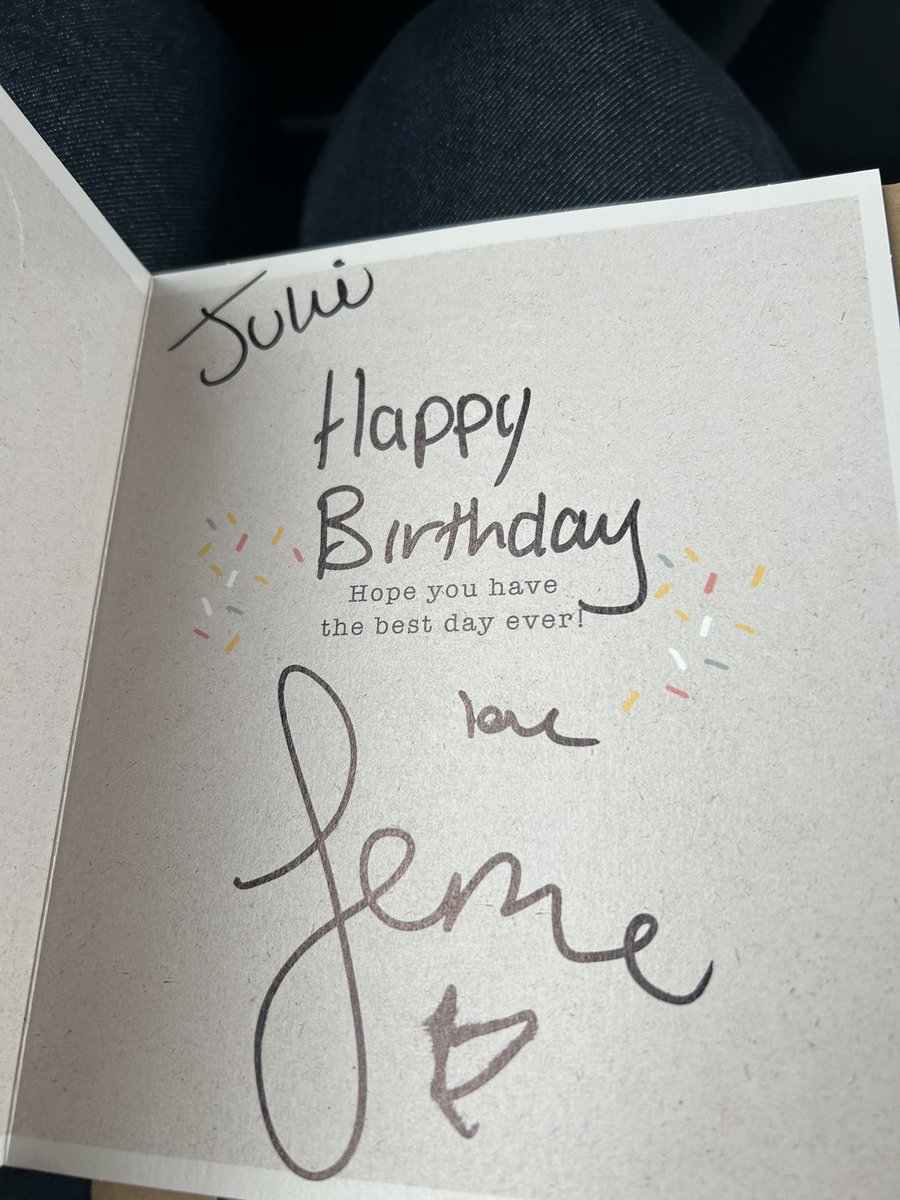 Julie
Happy
Birthday
Hope you have
the best day ever!
love